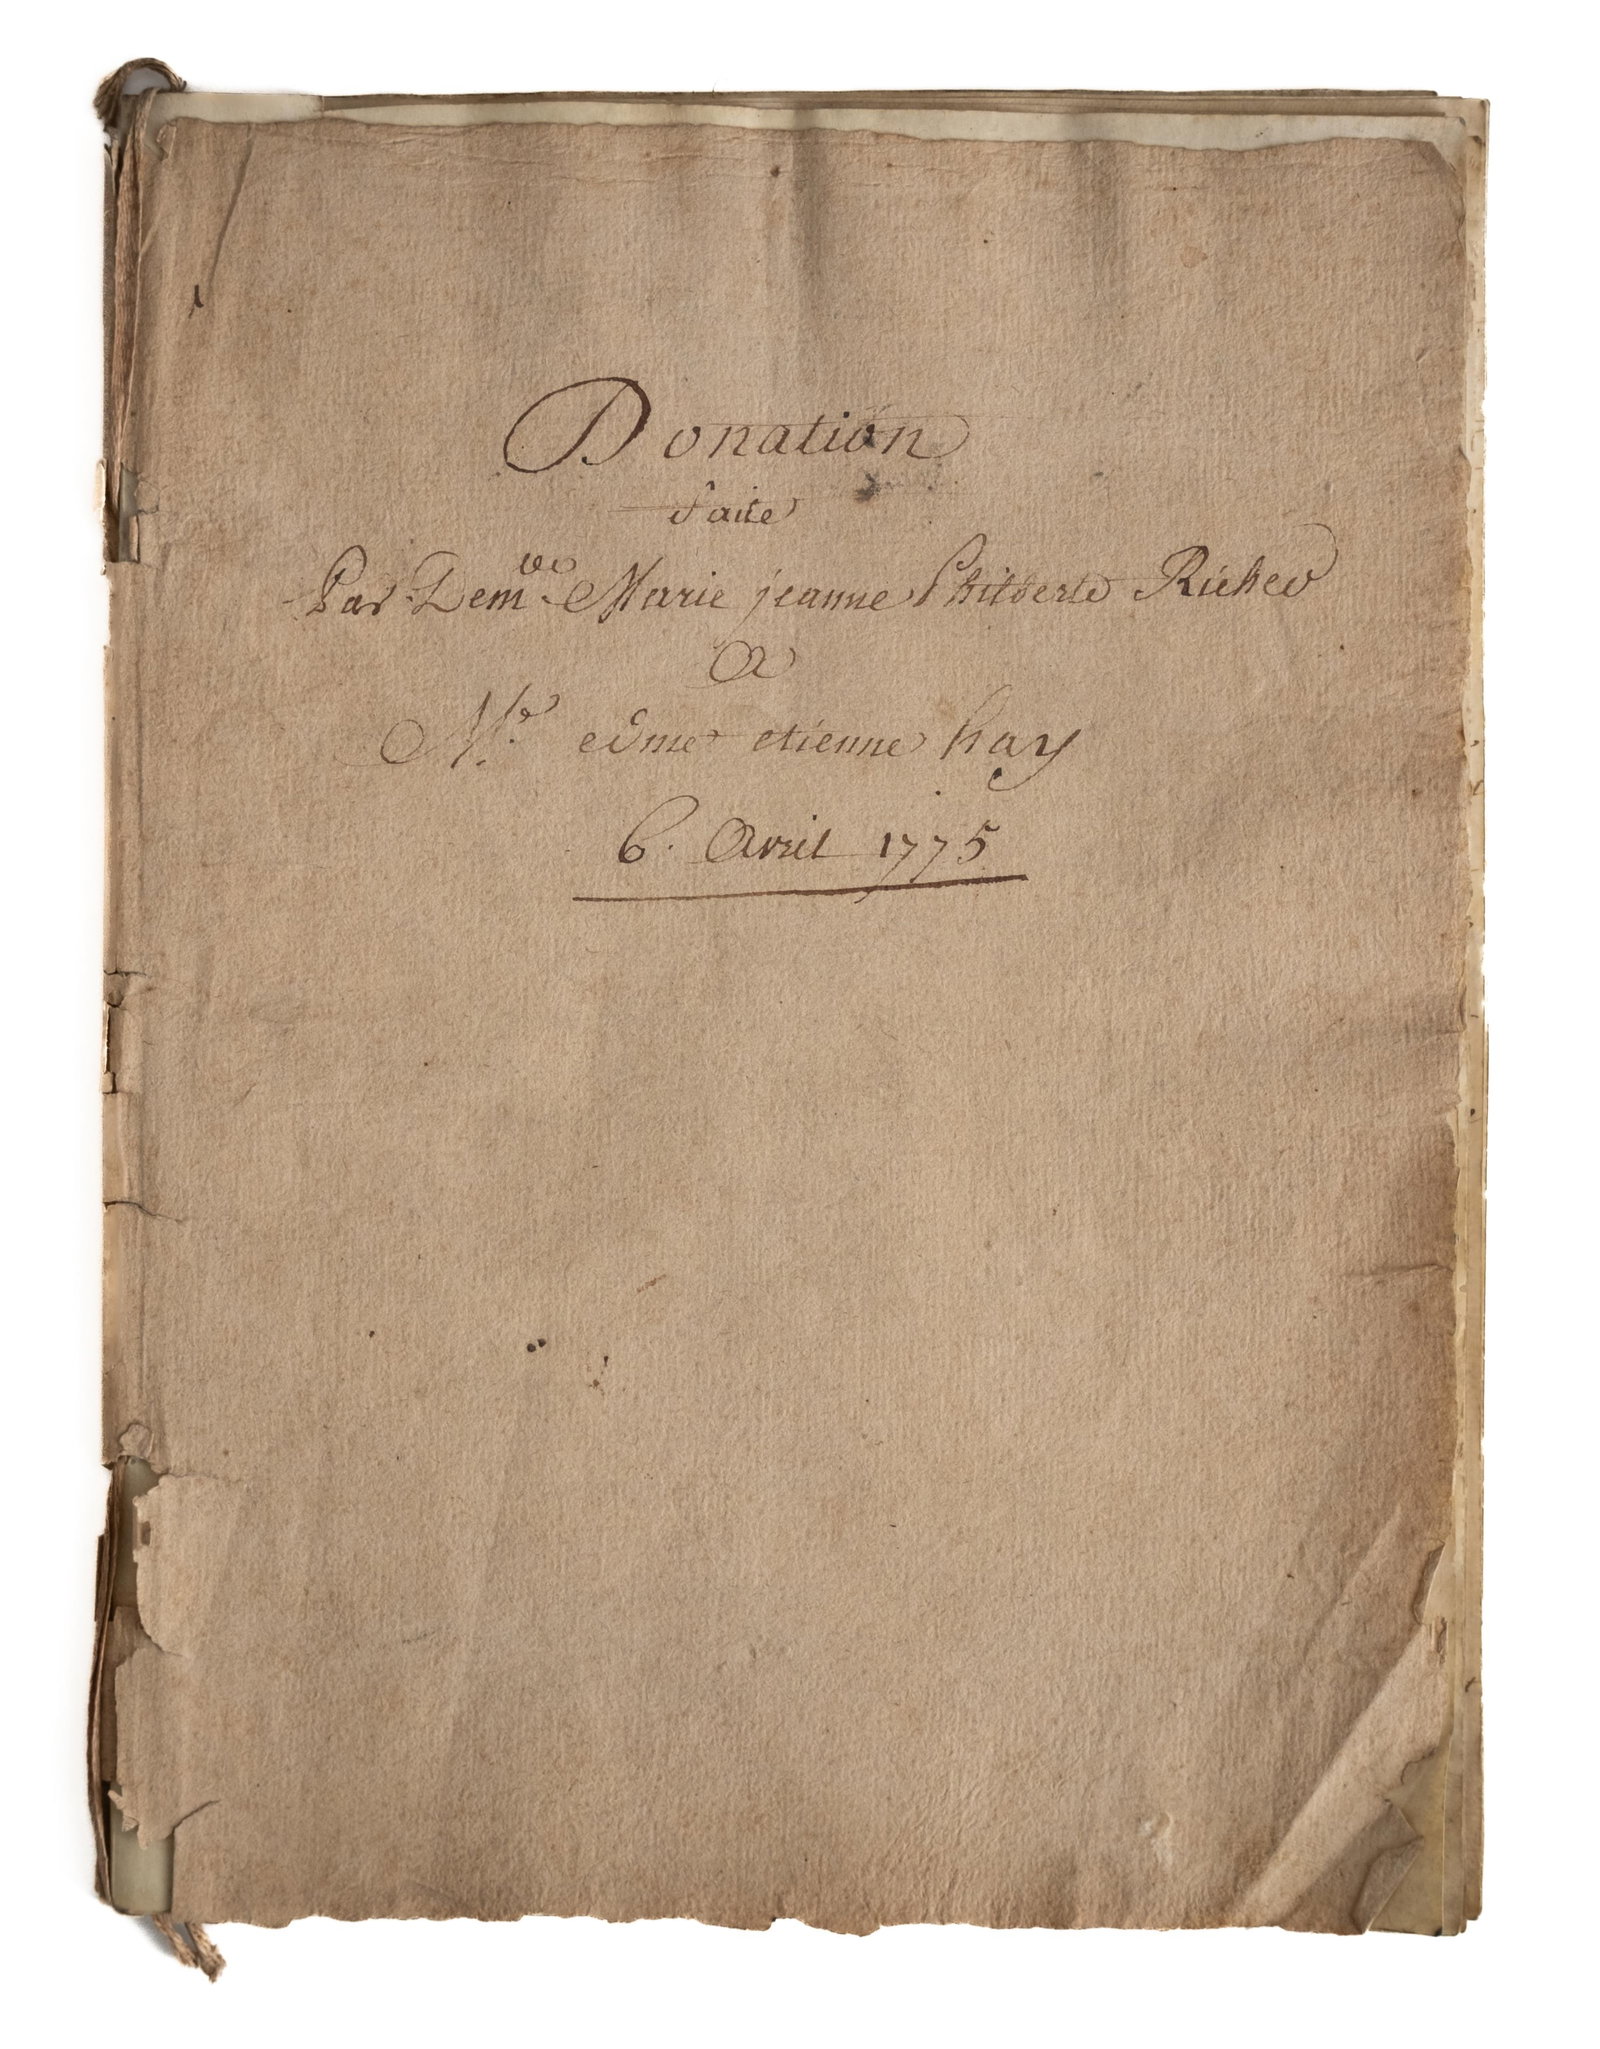 Donation
faite
Par Dem.lle Marie jeanne Philberte Richer
A
M.e edme etienne hay
6. Avril 1775